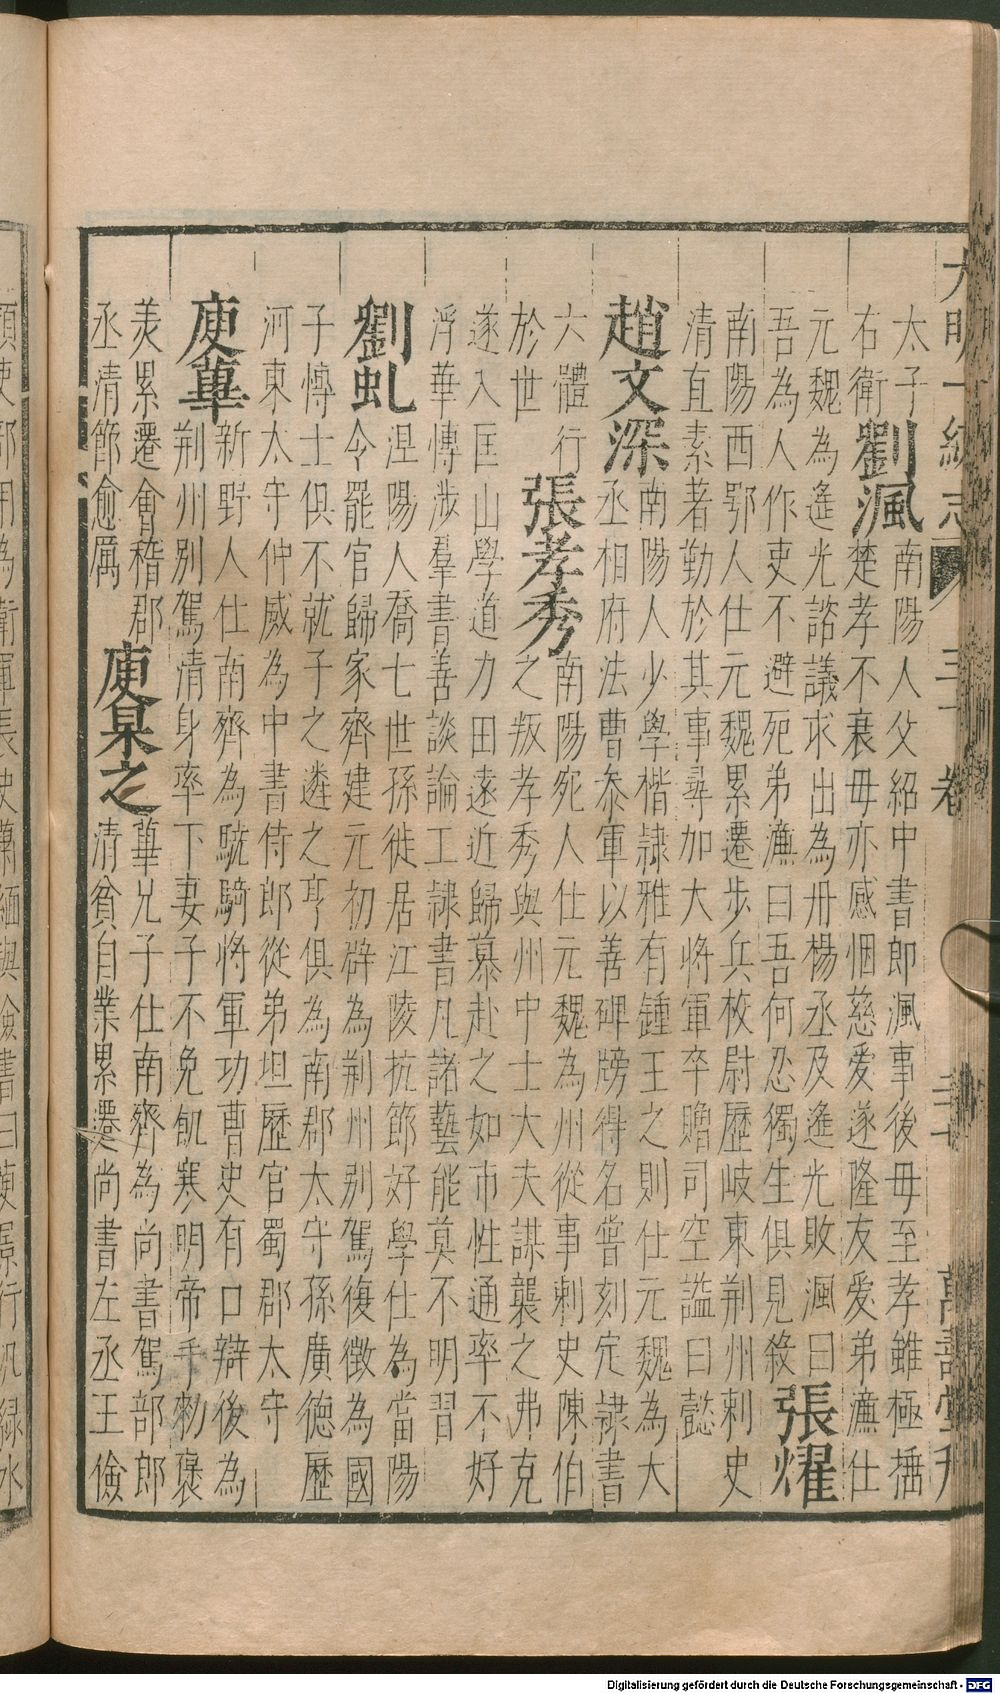 大明一統志 三十卷 三十 萬壽堂刊
太子
右衛
劉渢
南陽人父紹中書郎渢事後毋至孝雖極捶
楚孝不衰毋亦感悃慈愛遂隆友愛弟㵘仕
元魏為遙光諮議求出為丹楊丞及遙光敗渢曰
吾為人作吏不避死弟㵘曰吾何忍獨生俱見殺
張燿
南陽西鄂人仕元魏累遷步兵校尉歷岐東荆州刺史
清直素著勤於其事尋加大將軍卒贈司空謚曰懿
趙文深
南陽人少學楷隸雅有鍾王之則仕元魏為大
丞相府法曹叅軍以善碑牓得名嘗刻定隸書
六體行
於世
張孝秀
南陽宛人仕元魏為州從事刺史陳伯
之叛孝秀與州中士大夫謀襲之弗克
遂入匡山學道力田遠近歸慕赴之如市性通率不好
浮華慱涉羣書善談論工隸書凡諸藝能莫不明習
劉虬
涅陽人喬七世孫徙居江陵抗節好學仕為當陽
令罷官歸家齊建元初辟為荆州別駕復徵為國
子慱士俱不就子之遴之亨俱為南郡太守孫廣德歷
河東太守仲威為中書侍郎從弟坦歷官蜀郡太守
庾蓽
新野人仕南齊為驍騎將軍功曹史有口辯後為
荆州別駕清身率下妻子不免飢寒明帝手勑褒
羙累遷會稽郡
丞清節愈厲
庾杲之
蓽兄子仕南齊為尚書駕部郎
清貧自業累遷尚書左丞王儉
領吏部用為衛軍長史蕭緬與儉書曰庾景行汎綠水
Digitalisierung gefördert durch die Deutsche Forschungsgemeinschaft - DFG